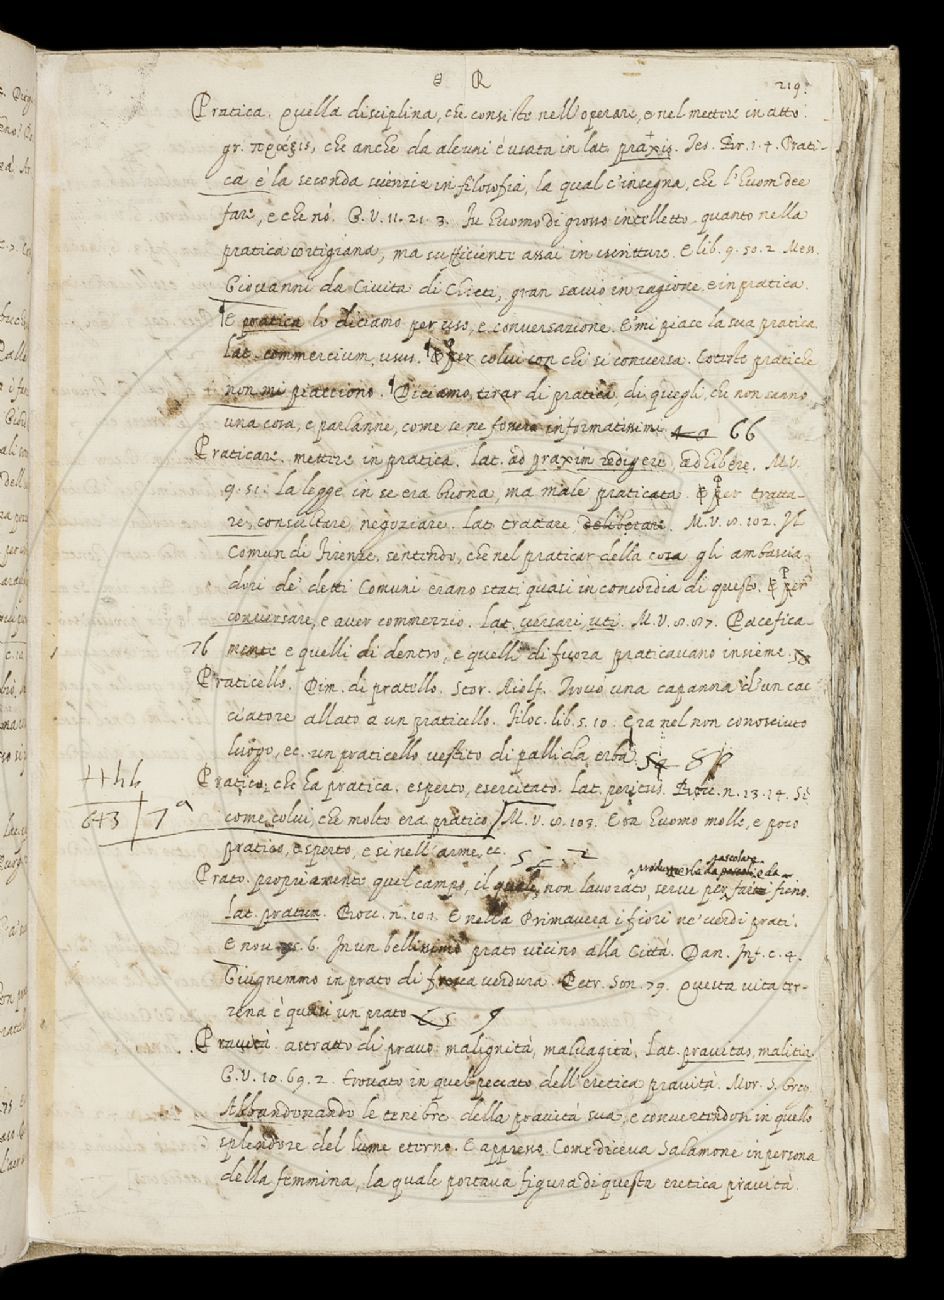 P R
219.
Pratica. Quella disciplina, che consiste nell'operare, e nel mettere in atto.
gr. πρᾶξις, che anche da alcuni è usata in lat. praxis. Tes. Br. 1. 4. Prati-
ca è la seconda scienzia in filosofia, la qual c'insegna, che l'huom dee
fare, e che nò. G. V. 11. 21. 3. Fu huomo di grosso intelletto quanto nella
pratica cortigiana, ma sufficiente assai in iscritture. E lib. 9. 50. 2. Mess.
Giovanni da Civita di Chieti, gran savio in ragione, e in pratica.
E pratica lo diciamo per uso, e conversazione. E' mi piace la sua pratica.
Lat. commercium, usus. Per colui con chi si conversa. Coteste pratiche
non mi piacciono. Diciamo, tirar di pratica, di quegli, che non sanno
una cosa, e parlanne, come se ne fussero informatissimi. 66
Praticare. mettere in pratica. Lat. ad praxim redigere, adhibere. M. V.
9. 51. La legge in se era buona, ma male praticata. Per tratta-
re, consultare, negoziare. Lat. tractare deliberare. M. V. 8. 102. Il
Comun di Firenze, sentendo, che nel praticar della cosa gli ambascia-
dori de' detti Comuni erano stati quasi in concordia di questo. Per
conversare, e aver commerzio. Lat. versari, uti. M. V. 8. 87. Pacefica-
76 mente e quelli di dentro, e quelli di fuora praticavano insieme.
Praticello. Dim. di pratello. Stor. Aiolf. Trovò una capanna d'un cac-
ciatore allato a un praticello. Filoc. lib. 5. 10. Era nel non conosciuto
luogo, ec. un praticello vestito di pallida erba.
Pratico, che ha pratica, esperto, esercitato. Lat. peritus. Bocc. n. 13. 14. Si
643 7
come colui, che molto era pratico. M. V. 8. 103. Era huomo molle, e poco
pratico, esperto, e se nell'arme, ec.
pascolare
produrre erba da
Prato. propriamente quel campo, il quale, non lavorato, serve per fieno.
Lat. pratum. Bocc. n. 101. E nella Primavera i fiori ne' verdi prati.
E nov. 6. In un bellissimo prato vicino alla Città. Dan. Inf. c. 4.
Giugnemmo in prato di fresca verdura. Petr. Son. 79. Questa vita ter-
rena è quasi un prato
Pravità. astratto di pravo: malignità, malvagità. Lat. pravitas, malitia.
G. V. 10. 69. 2. trovato in quel peccato dell'eretica pravità. Mor. S. Greg.
Abbandonando le tenebre della pravità sua, e convertendosi in quello
splendore del lume eterno. E appresso. Come diceva Salamone in persona
della femmina, la quale portava figura di questa eretica pravità.